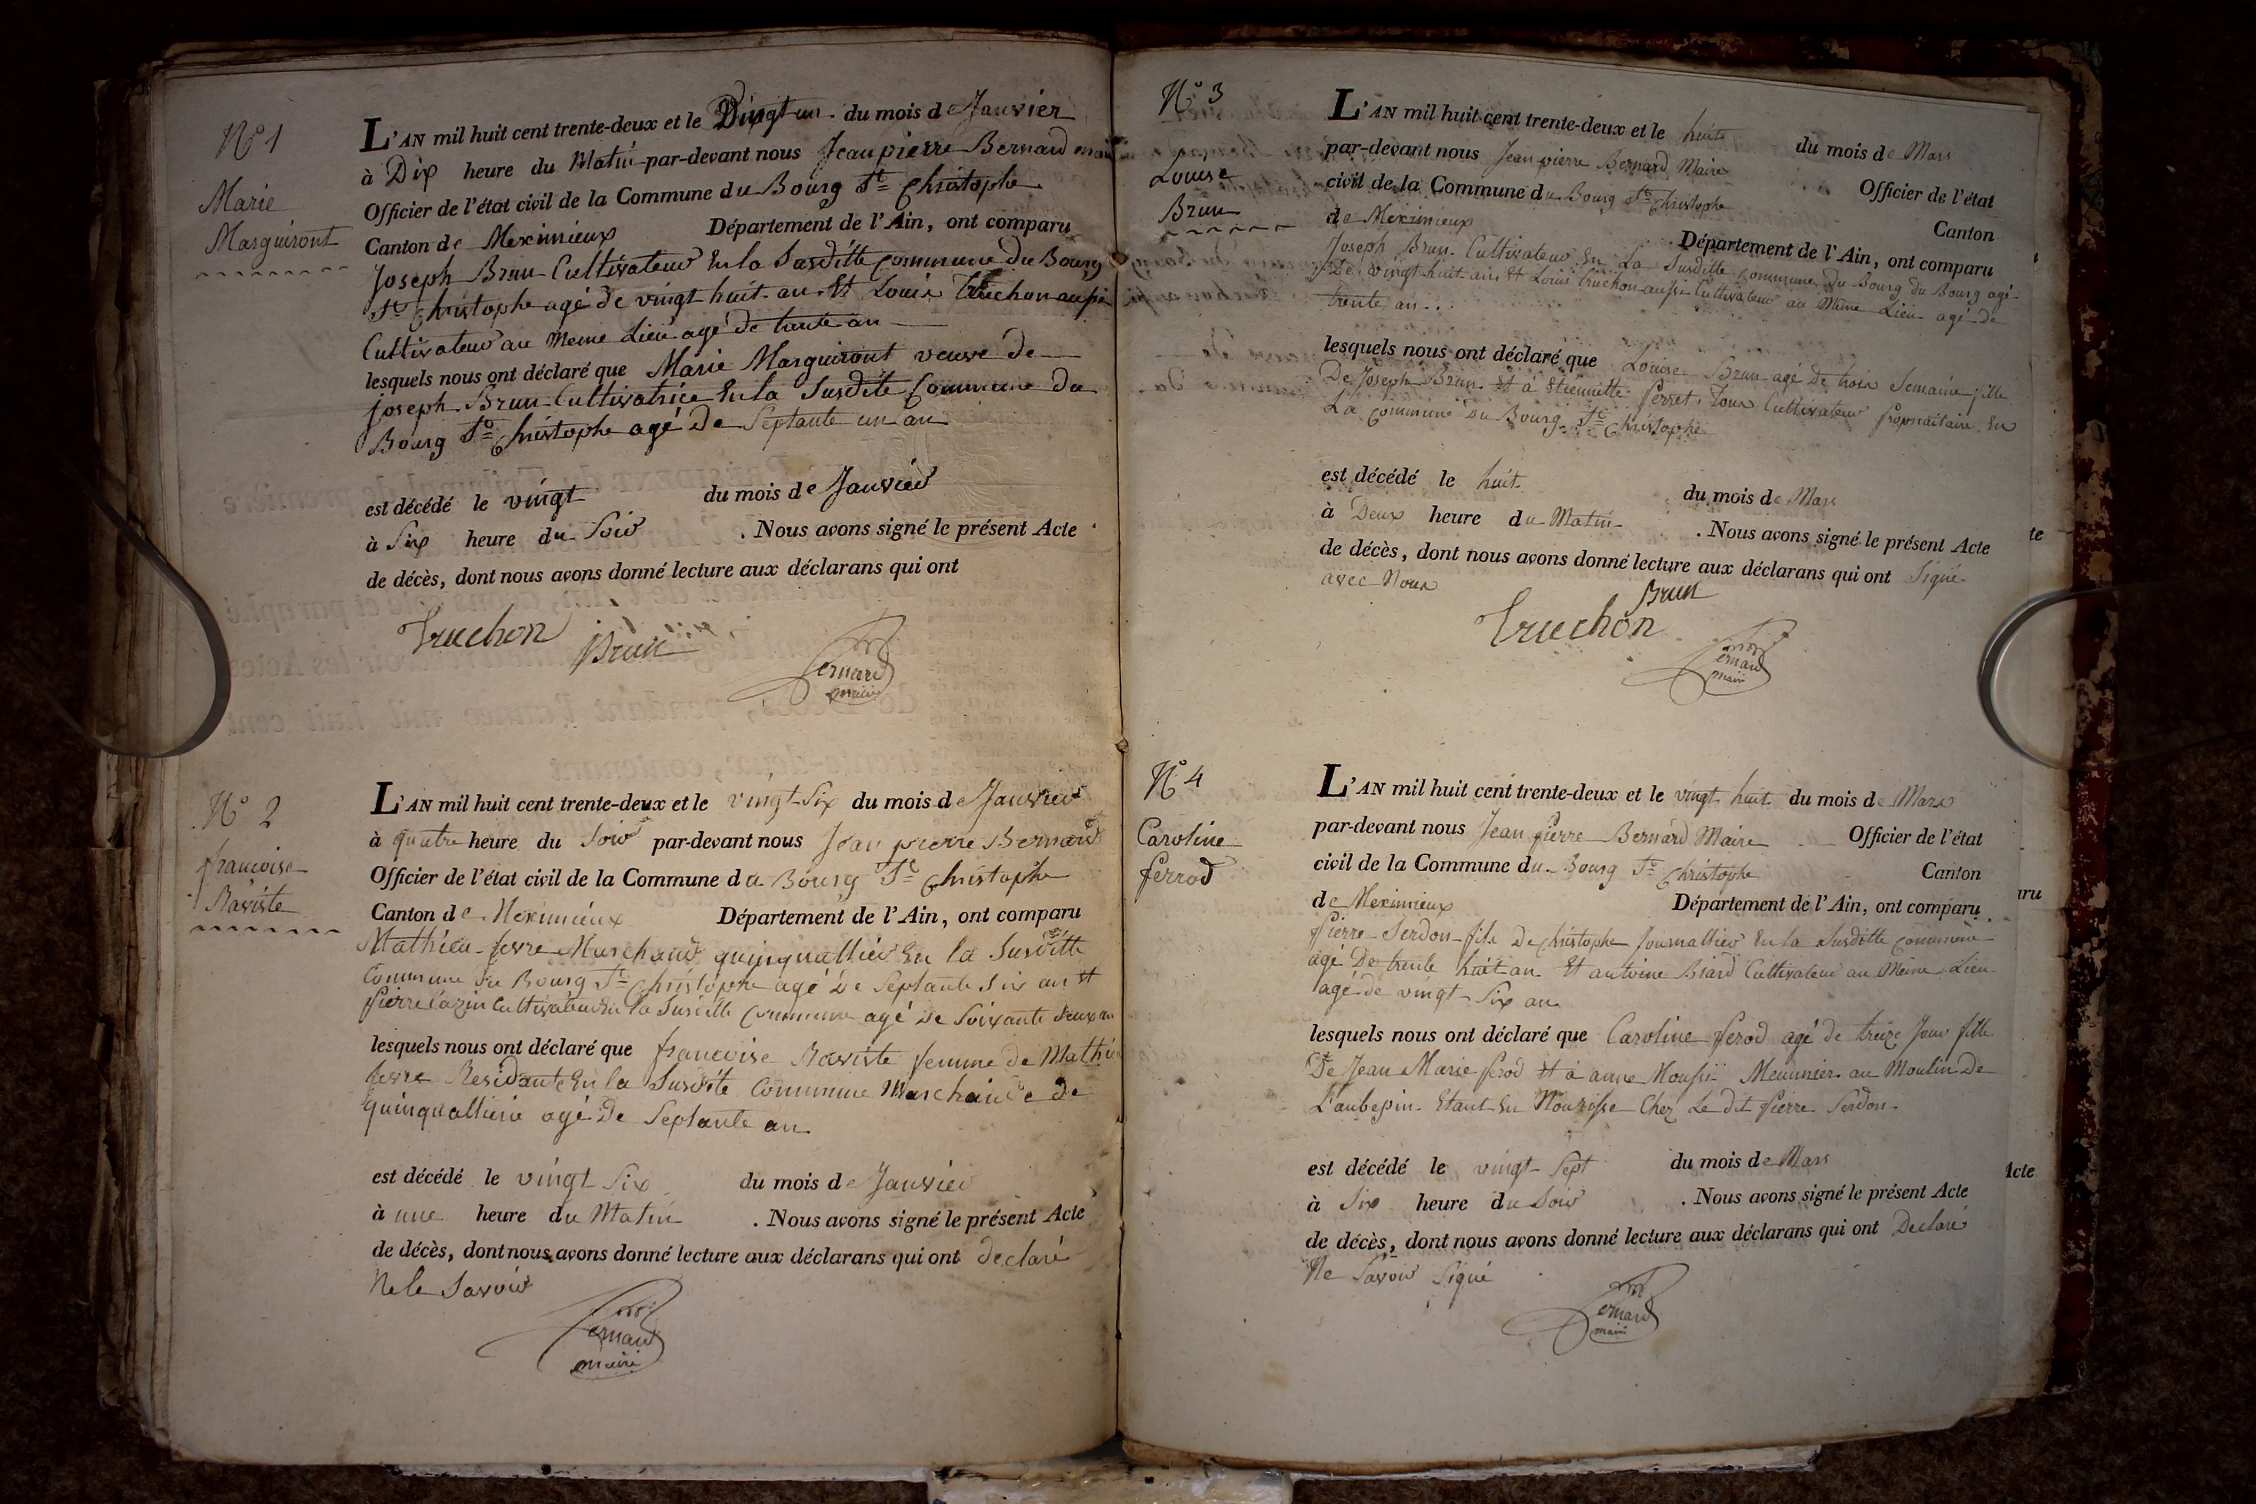 N° 1
Marie
Marguiront
L'AN mil huit cent trente-deux et le Vingt un du mois de Janvier
à Dix heure du Matin par-devant nous Jean pierre Bernard maire
Officier de l'état civil de la Commune du Bourg St Christophe
Canton de Meximieux Département de l'Ain, ont comparu
Joseph Brun Cultivateur En la Susditte Commune du Bourg
St Christophe agé de vingt huit an Et Louis Truchon aussi
Cultivateur au meme Lieu agé de trente an
lesquels nous ont déclaré que Marie Marguiront veuve de
joseph Brun Cultivatrice En la Susdite Commune du
Bourg St Christophe agé De Septante un an
est décédé le vingt du mois de Janvier
à Six heure du Soir . Nous avons signé le présent Acte
de décès, dont nous avons donné lecture aux déclarans qui ont
Truchon Brun Bernard
maire
N° 2
francoise
Raviste
L'AN mil huit cent trente-deux et le vingt Six du mois de Janvier
à quatre heure du Soir par-devant nous Jean pierre Bernard
Officier de l'état civil de la Commune du Bourg St Christophe
Canton de Meximieux Département de l'Ain, ont comparu
Mathieu fevre Marchand quinquallier En la Susditte
Commune du Bourg St Christophe agé De Septante Six an Et
Pierre Cazin Cultivateur En la Susditte Commune agé De Soixante deux an
lesquels nous ont déclaré que francoise Raviste femme de Mathieu
fevre Residante En la Susdite Commune Marchande de
quinquallierie agé De Septante an
est décédé le vingt Six du mois de Janvier
à une heure du Matin . Nous avons signé le présent Acte
de décès, dont nous avons donné lecture aux déclarans qui ont declaré
Ne le Savoir
Bernard
maire
N° 3
Louise
Brun
L'AN mil huit cent trente-deux et le huit du mois de Mars
par-devant nous Jean pierre Bernard Maire Officier de l'état
civil de la Commune du Bourg St Christophe Canton
de Meximieux Département de l'Ain, ont comparu
Joseph Brun Cultivateur En La Susditte Commune Du Bourg du Bourg agé
De vingt huit ans Et Louis Truchon aussi Cultivateur au Même Lieu agé de
trente an
lesquels nous ont déclaré que Louise Brun agé De trois Semaine fille
De Joseph Brun Et à Etiennette Perret Tous Cultivateur Propriaitaire En
La Commune Du Bourg St Christophe
est décédé le huit du mois de Mars
à Deux heure du Matin . Nous avons signé le présent Acte
de décès, dont nous avons donné lecture aux déclarans qui ont Signé
avec Nous
Brun
Truchon
Bernard
maire
te
N° 4
Caroline
ferrod
L'AN mil huit cent trente-deux et le vingt huit du mois de Mars
par-devant nous Jean pierre Bernard Maire Officier de l'état
civil de la Commune du Bourg St Christophe Canton
de Meximieux Département de l'Ain, ont comparu
Pierre Serdon fils De Christophe Journallier En la Susditte Commune
agé De trente huit an Et antoine Biard Cultivateur au Même Lieu
agé de vingt Six an
lesquels nous ont déclaré que Caroline ferod agé de treize Jour fille
De Jean Marie ferod Et à anne Meunnier au Moulin De
L'aubepin Etant En Nourisse Chez Le dit Pierre Serdon
est décédé le vingt Sept du mois de Mars
à Six heure du Soir . Nous avons signé le présent Acte
de décès, dont nous avons donné lecture aux déclarans qui ont Declaré
Ne Savoir Signé
Bernard
maire
aru
Acte